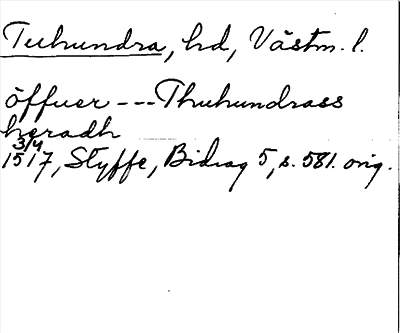 Tuhundra, hd, Västm. l.
öffuer --- Thuhundrass
heradh
3/4
1517, Styffe, Bidrag 5, s. 581. orig.